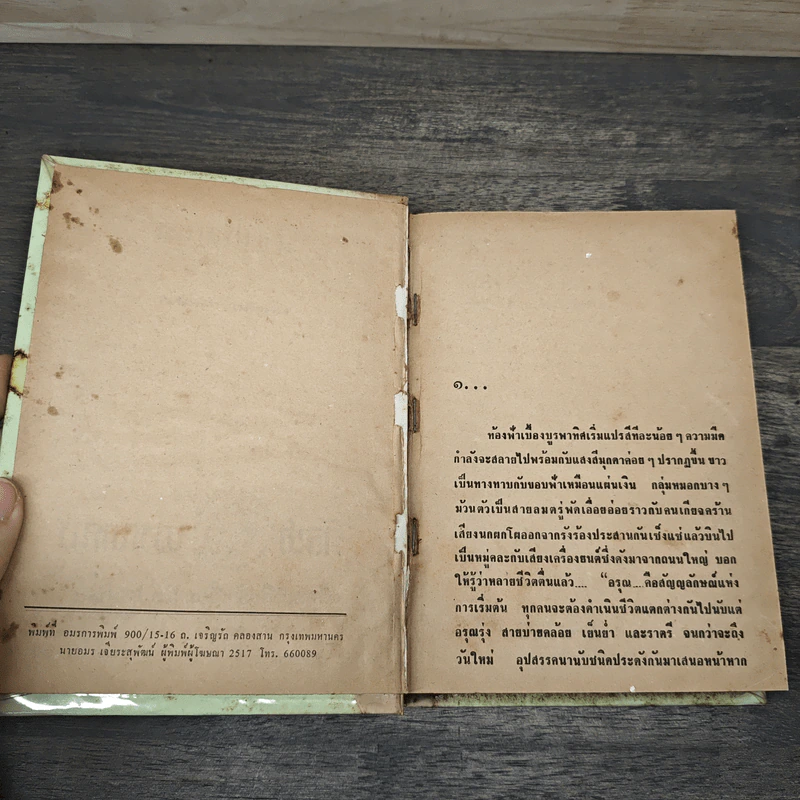 พิมพ์ที่ อมรการพิมพ์ 900/15-16 ถ. เจริญรัถ คลองสาน กรุงเทพมหานคร
นายอมร เจียระสุพัฒน์ ผู้พิมพ์ผู้โฆษณา 2517 โทร. 660089
๑...
ท้องฟ้าเบื้องบูรพาทิศเริ่มแปรสีทีละน้อย ๆ ความมืด
กำลังจะสลายไปพร้อมกับแสงสีมุกดาค่อย ๆ ปรากฏขึ้น ขาว
เป็นทางทาบกับขอบฟ้าเหมือนแผ่นเงิน กลุ่มหมอกบาง ๆ
ม้วนตัวเป็นสายลมตรู่พัดเอื่อยอ่อยราวกับคนเกียจคร้าน
เสียงนกผกโผออกจากรังร้องประสานกันเซ็งแซ่แล้วบินไป
เป็นหมู่คละกับเสียงเครื่องยนต์ซึ่งดังมาจากถนนใหญ่ บอก
ให้รู้ว่าหลายชีวิตตื่นแล้ว.... "อรุณ....คือสัญญลักษณ์แห่ง
การเริ่มต้น ทุกคนจะต้องดำเนินชีวิตแตกต่างกันไปนับแต่
อรุณรุ่ง สายบ่ายคล้อย เย็นย่ำ และราตรี จนกว่าจะถึง
วันใหม่ อุปสรรคนานับชนิดประดังกันมาเสนอหน้าหาก